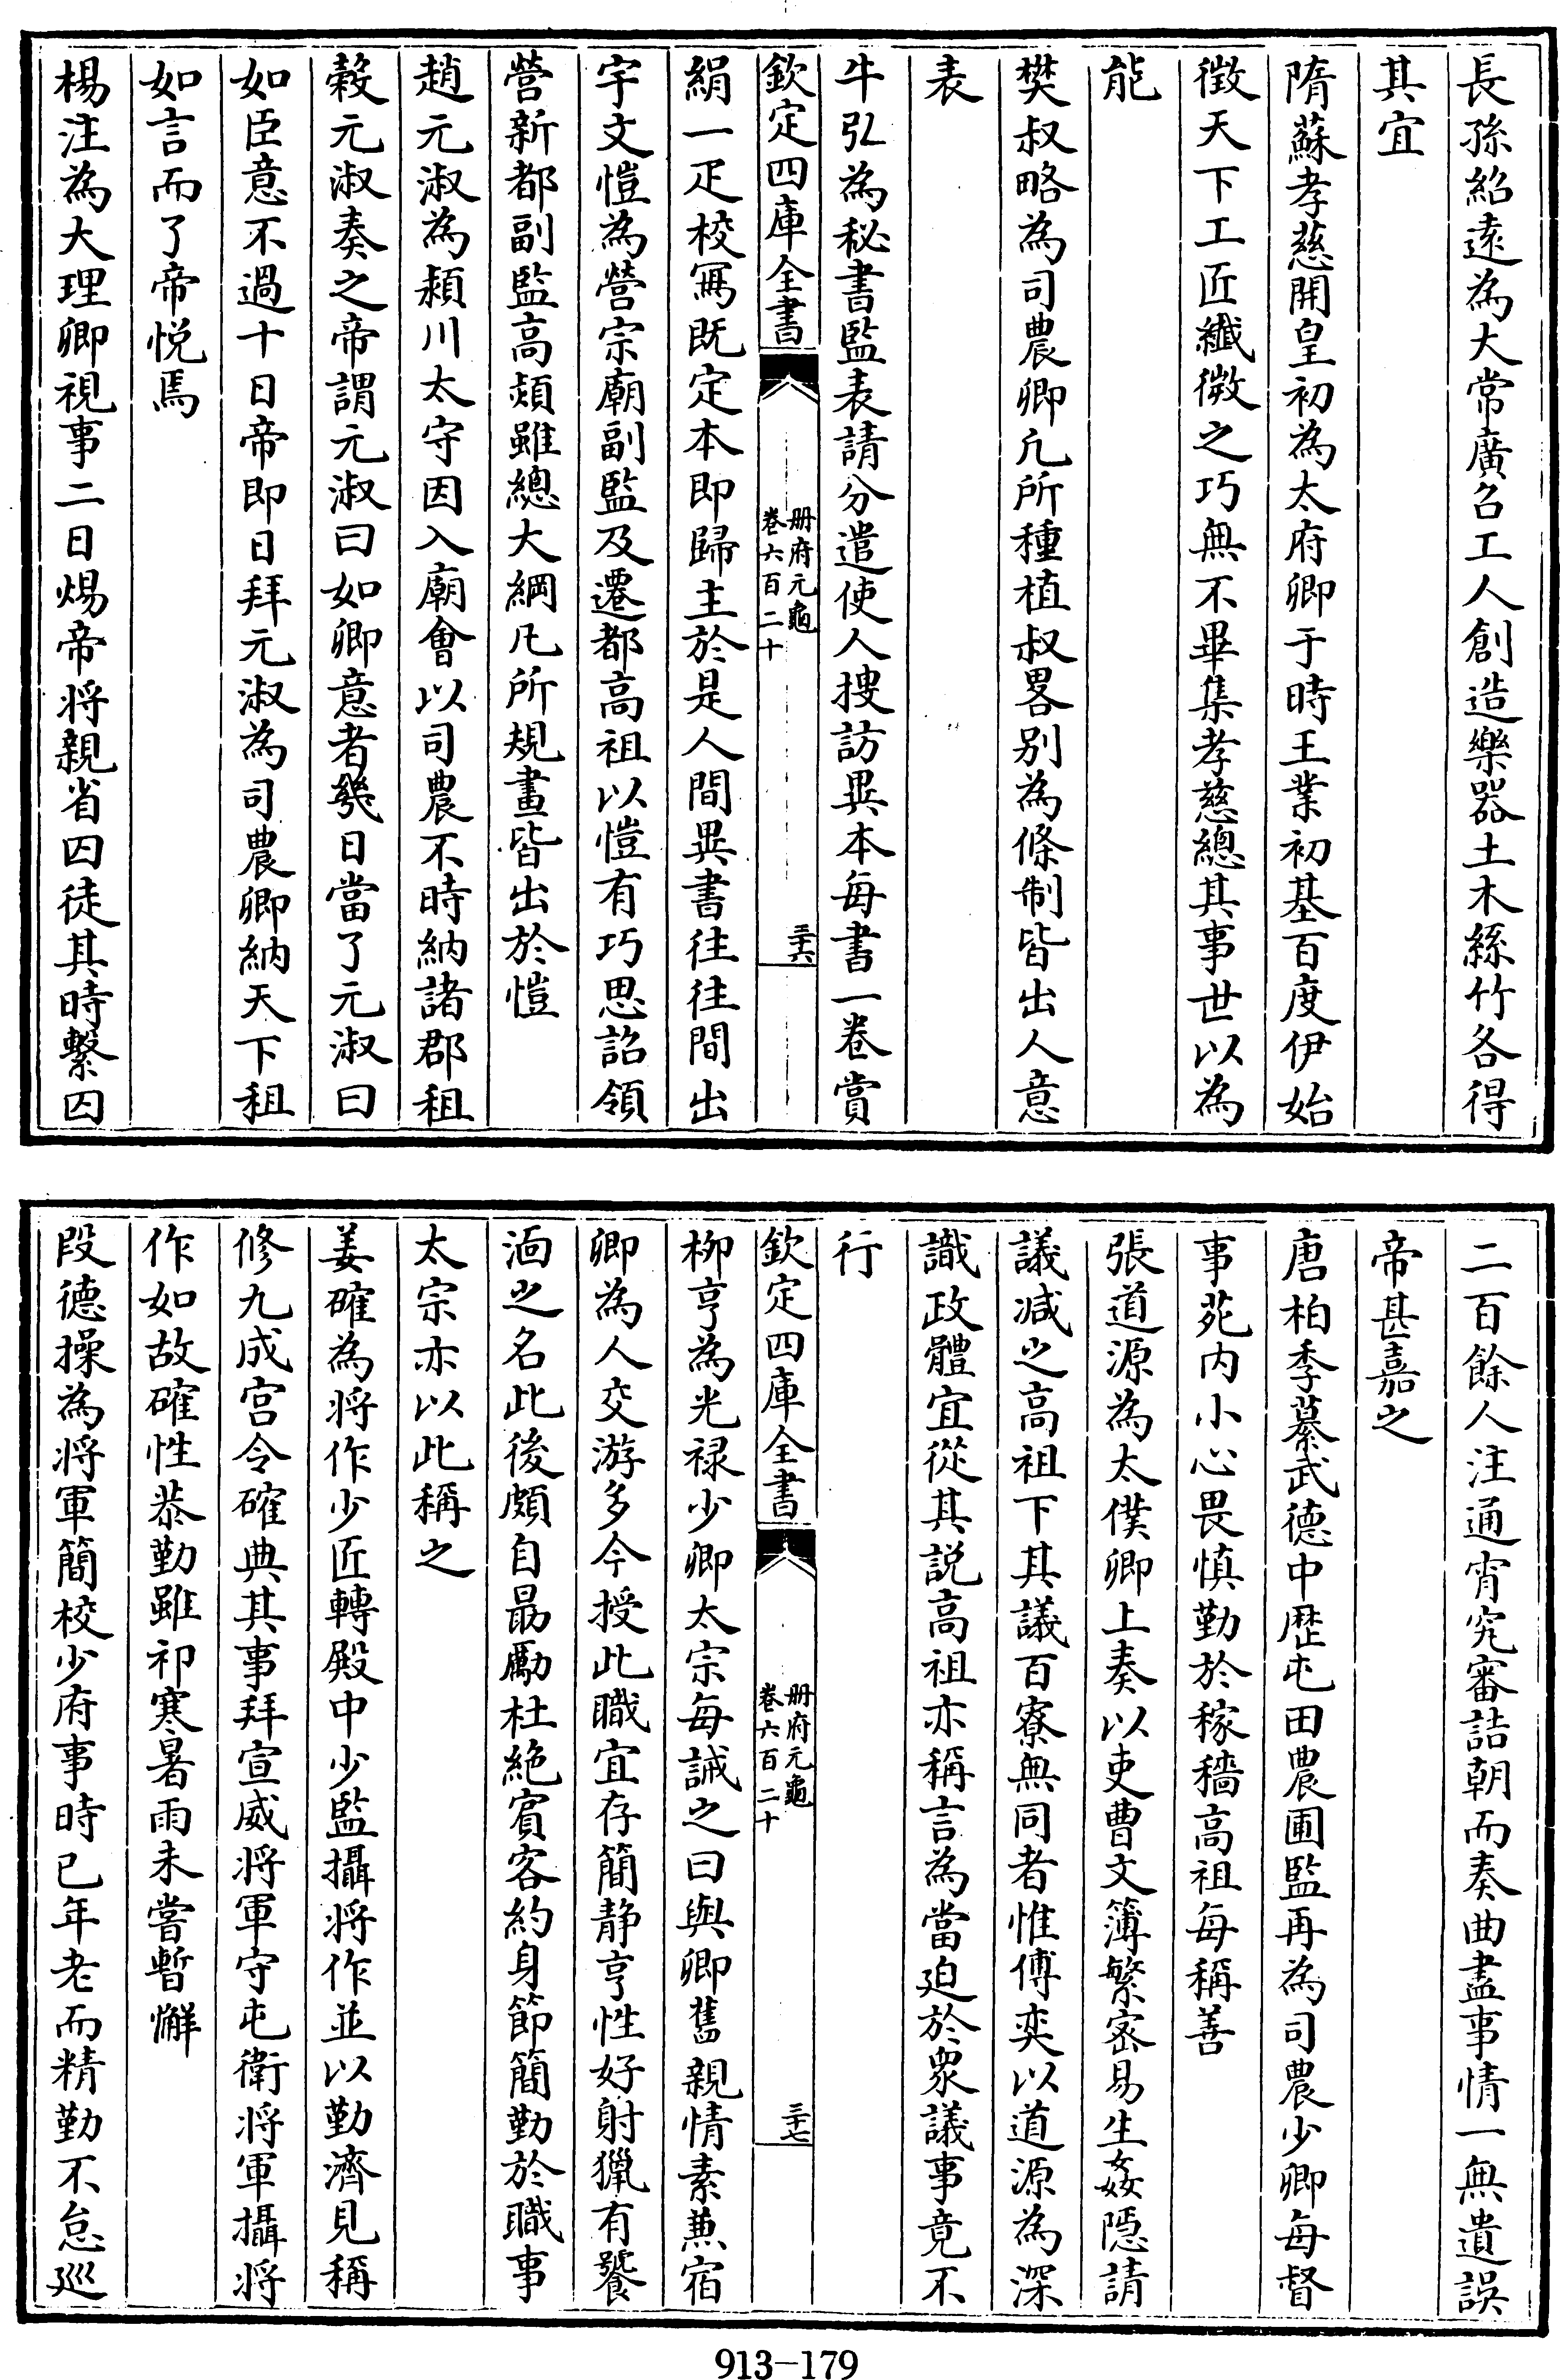 長孫紹遠為大常廣召工人創造樂器土木絲竹各得
其宜
隋蘇孝慈開皇初為太府卿于時王業初基百度伊始
徴天下工匠纎微之巧無不畢集孝慈總其事世以為
能
樊叔略為司農卿凢所種植叔畧别為條制皆出人意
表
牛弘為秘書監表請分遣使人搜訪異本每書一卷賞
欽定四庫全書
册府元龜
卷六百二十
三十六
絹一疋校冩既定本即歸主於是人間異書往往間出
宇文愷為營宗廟副監及遷都高祖以愷有巧思詔領
營新都副監高熲雖總大綱凡所規畫皆出於愷
趙元淑為潁川太守因入廟會以司農不時納諸郡租
榖元淑奏之帝謂元淑曰如卿意者幾日當了元淑曰
如臣意不過十日帝即日拜元淑為司農卿納天下租
如言而了帝悦焉
楊注為大理卿視事二日煬帝将親省囚徒其時繫囚
二百餘人注通宵究審詰朝而奏曲盡事情一無遺誤
帝甚嘉之
唐柏季纂武德中歴屯田農圃監再為司農少卿每督
事苑内小心畏慎勤於稼穡高祖每稱善
張道源為太僕卿上奏以吏曹文簿繁宻易生姦隠請
議减之高祖下其議百寮無同者惟傅奕以道源為深
識政體宜從其説高祖亦稱言為當廹於衆議事竟不
行
欽定四庫全書
册府元龜
卷六百二十
三十七
柳亨為光禄少卿太宗每誡之曰與卿舊親情素兼宿
卿為人交游多今授此職宜存簡静亨性好射獵有饕
湎之名此後頗自朂勵杜絶賔客約身節簡勤於職事
太宗亦以此稱之
姜確為将作少匠轉殿中少監攝将作並以勤濟見稱
修九成宫令確典其事拜宣威将軍守屯衛将軍攝将
作如故確性恭勤雖祁寒暑雨未嘗暫懈
段德操為将軍簡校少府事時已年老而精勤不怠廵
913-179